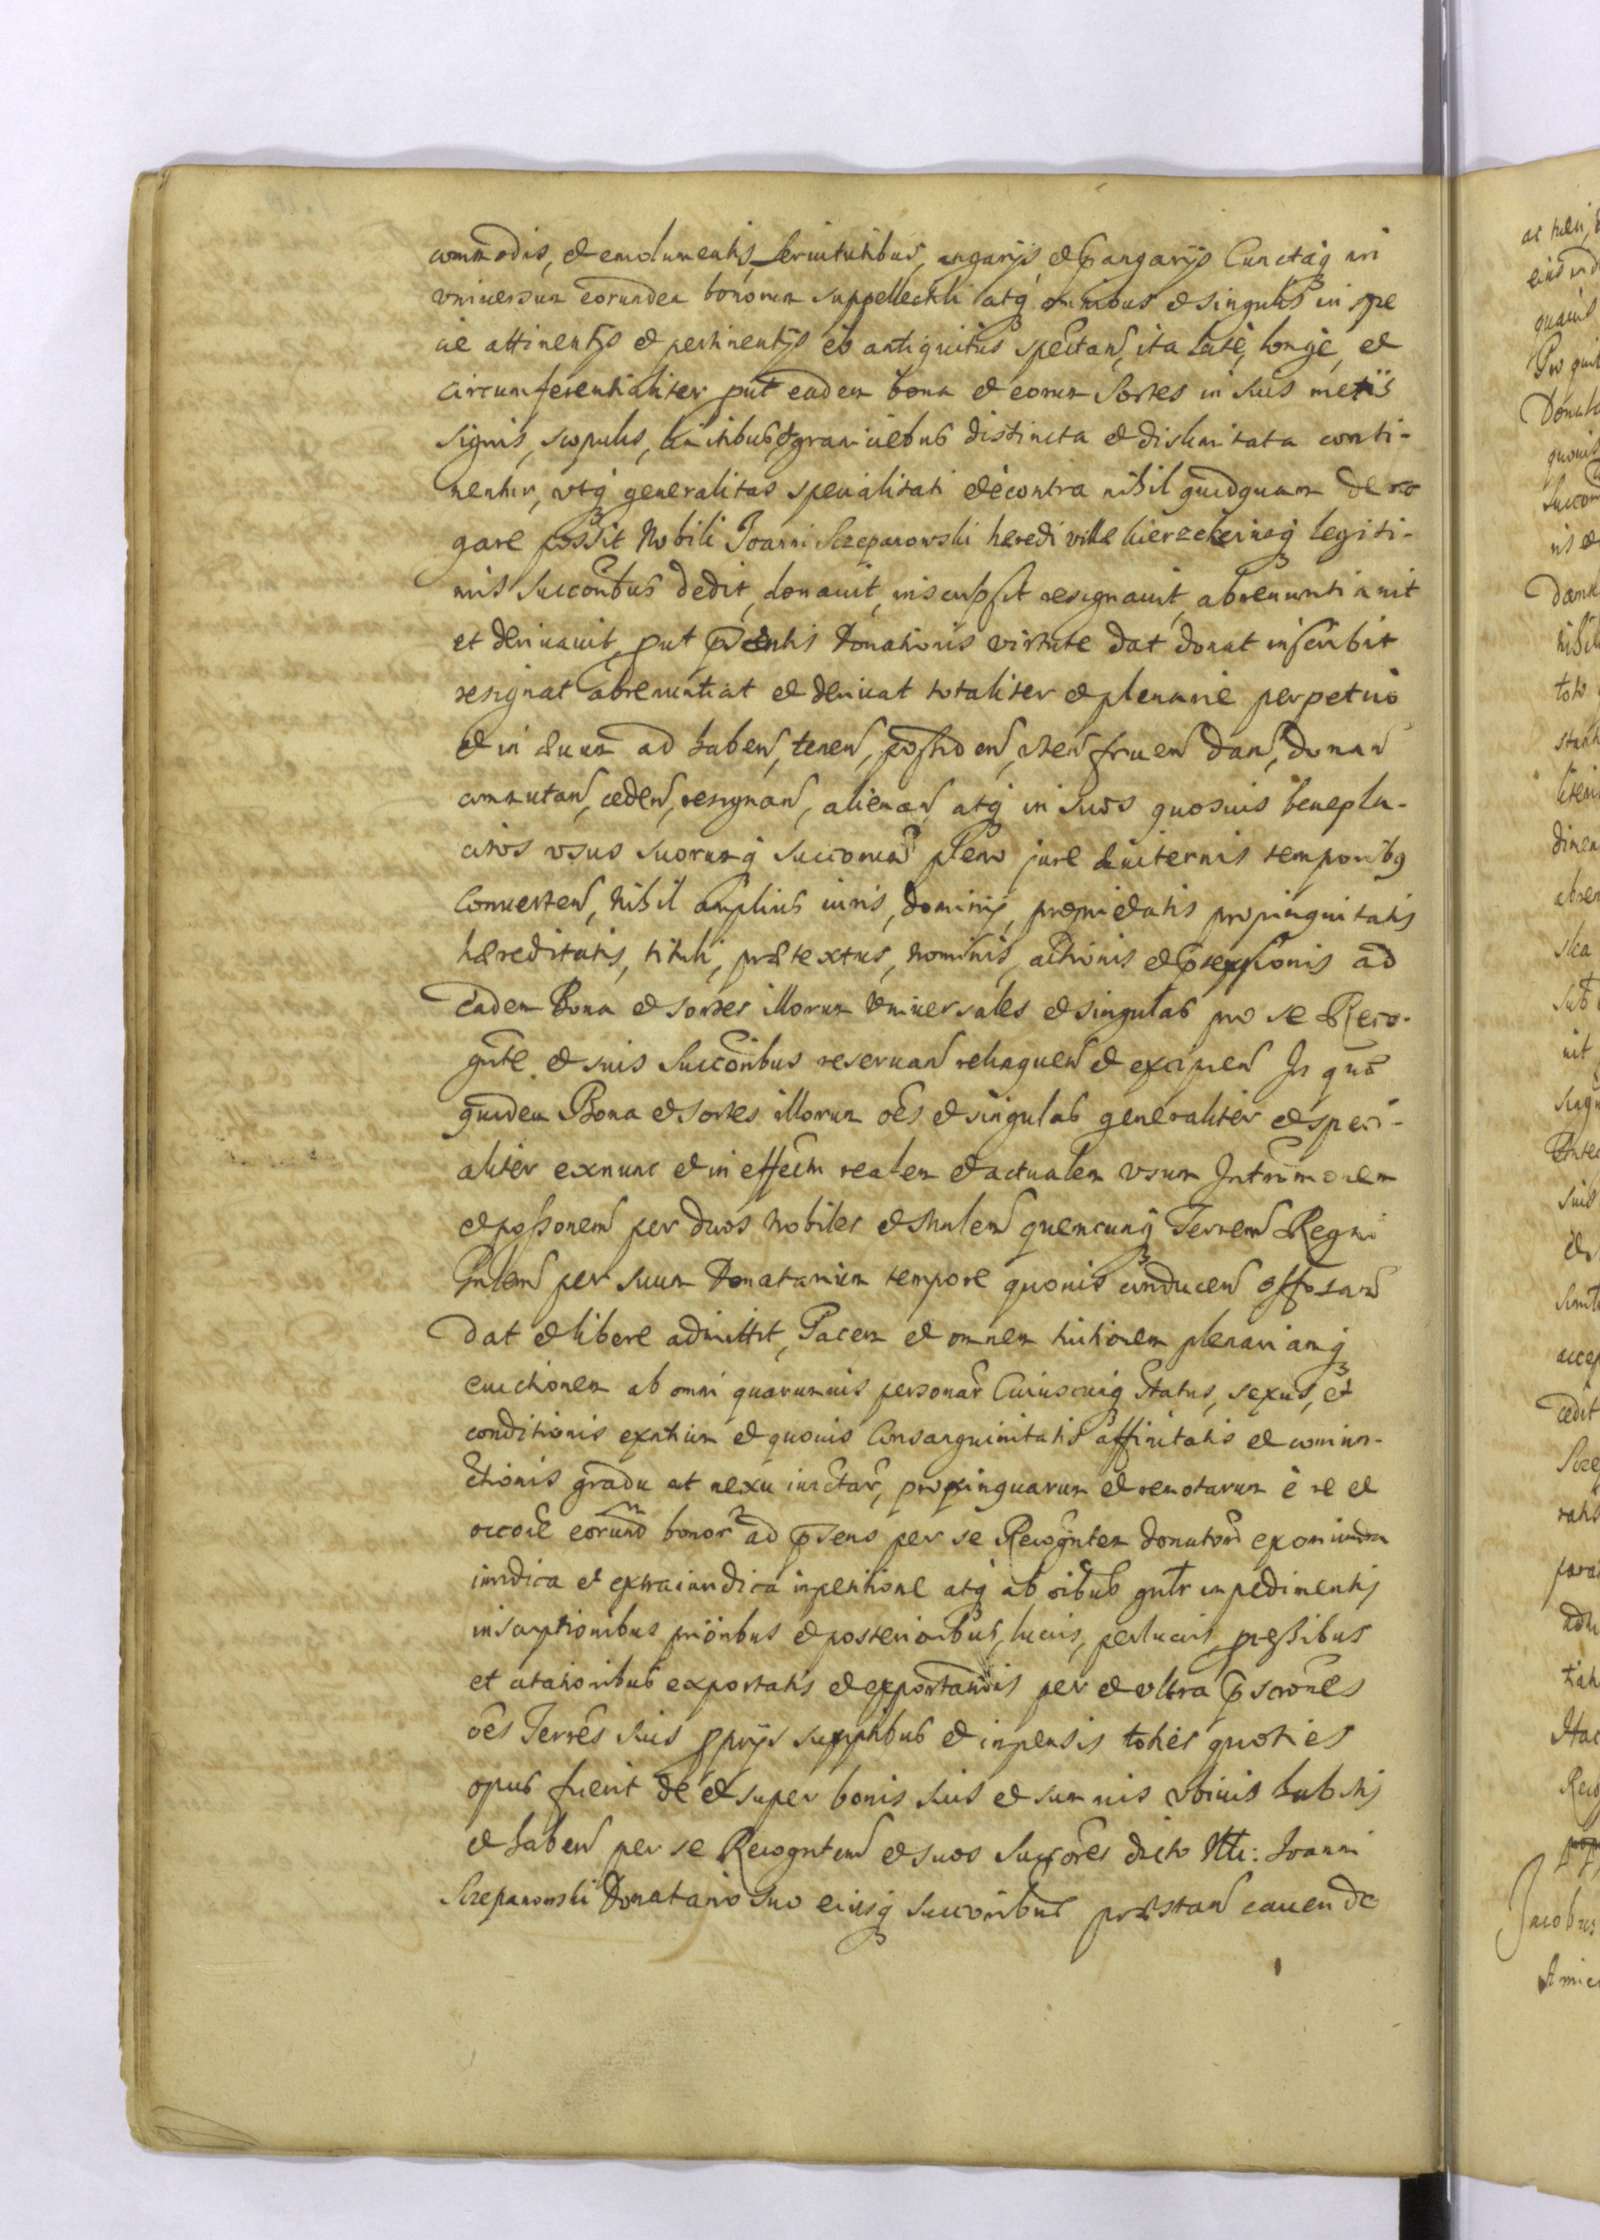 commodis, et emolumentis, seruitutibus, angarijs et pangarijs Cunctaq in
vniuersum eorundem bonorum suppellectili atq omnibus et singulis in spe
cie attinentijs et pertinentijs eo antiquitus spectan, ita late, longe, et
circumferentialiter put eadem bona et eorum Sortes in suis metis
signis, scopulis, limitibus, et graniciebus distincta et dislimitata conti-
nentur, vtq generalitas specialitati et econtra nihil quidquam dero
gare possit Nobili Joanni Sczepanowski heredi villæ eiusq legiti-
mis Succoribus dedit, donauit, inscripsit resignauit, abrenuntiauit
et deriuauit, put pntis Donationis virtute dat donat inscribit
resignat abrenuntiat et deriuat totaliter et plenarie perpetuo
et in æuum ad haben, tenen, possiden, vten fruen dan, donan
commutan, ceden, resignan, alienan atq in suos quosuis benepla-
citos vsus suorumq succorum pleno jure æuiternis temporibus
conuerten, Nihil amplius iuris, dominij, proprietatis propinquitatis
hæreditatis, tituli, prætextus, nominis, actionis et possessionis ad
eadem Bona et sortes illorum vniuersales et singulas pro se Reco-
gnte et suis Succoribus reseruan relinquen et excipien In quæ
quidem Bona et sortes illorum oes et singulas generaliter et speci-
aliter exnunc et in effectu realem et actualem vsum Intromionem
et possonem per duos Nobiles et Mnlem quemcunq Terrem Regni
Gnlem per suum Donatarium tempore quouis conducen
dat et libere admittit, Pacem et omnem tuitionem plenariamq
euictionem ab omni quarumuis personar Cuiuscunq status, sexus, et
conditionis extium et quouis Consanguinitatis affinitatis et coniun-
ctionis gradu at nexu iunctar, propinquarum et remotarum è re et
occoe eorund bonor ad psens per se Recogntem donator exoriunda
iuridica et extraiuridica inpetitione atq ab oibus gnlr impedimentis
inscriptionibus prioribus et posterioribus, lucris, perlucris, pressibus
et citationibus exportatis et exportandis per et vltra pscones
oes Terres suis pprijs sumptibus et inpensis toties quoties
opus fuerit de et super bonis suis et summis vbiuis habitis
et haben per se Recogntem et suos Succores dicto Nli: Joanni
Sczepanowski Donatario suo eiusq succoribus præstan cauende